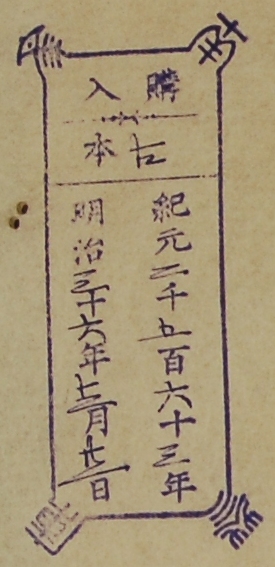 購入
古本
紀元二千五百六十三年
明治三十六年 月 日